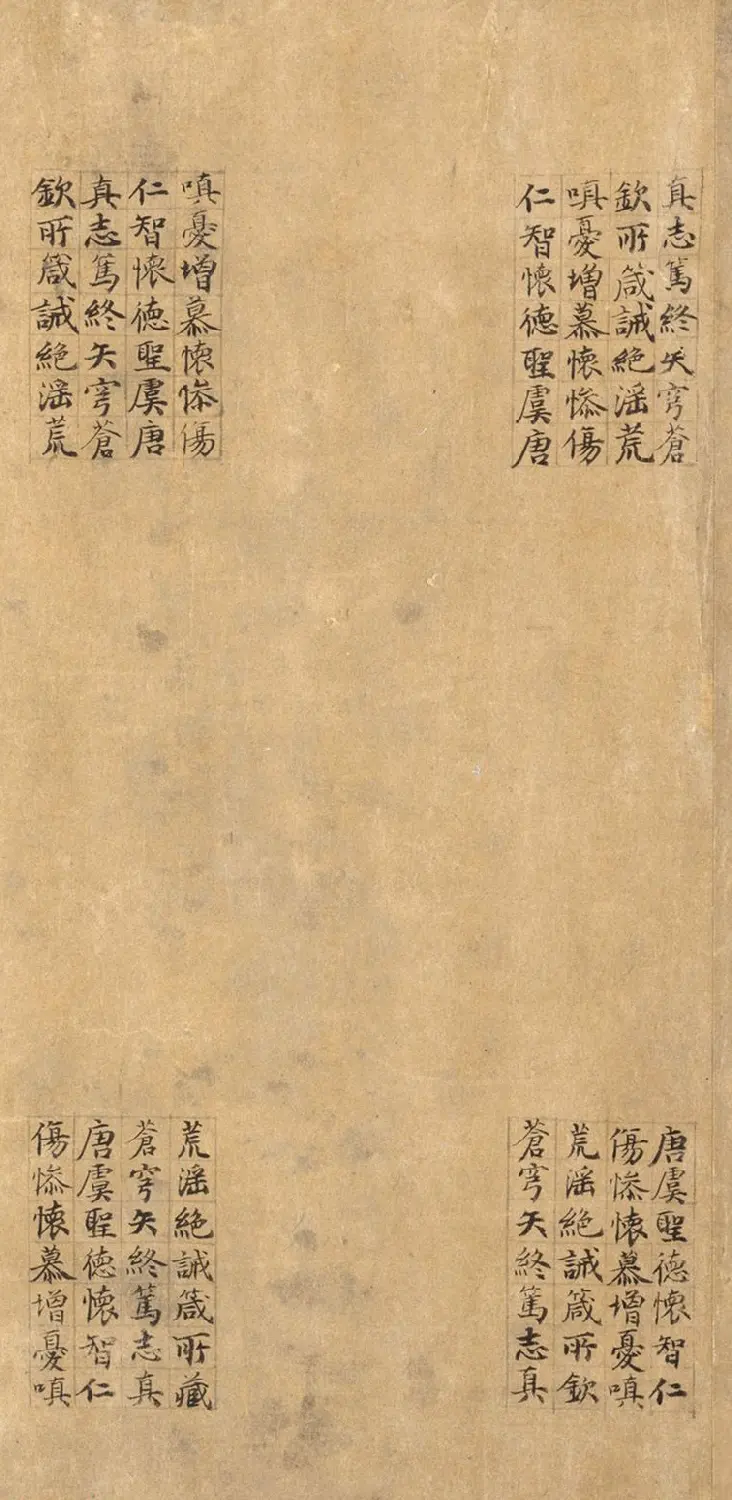 真志篤終矢穹蒼
欽所箴誡絶滛荒
嗔憂增慕懷慘傷
仁智懷德聖虞唐
嗔憂增慕懷慘傷
仁智懷德聖虞唐
真志篤終矢穹蒼
欽所箴誡絶滛荒
唐虞聖德懷智仁
傷慘懷慕增憂嗔
荒滛絶誡箴所欽
蒼穹矢終篤志真
荒滛絶誡箴所藏
蒼穹矢終篤志真
唐虞聖德懷智仁
傷慘懷慕增憂嗔